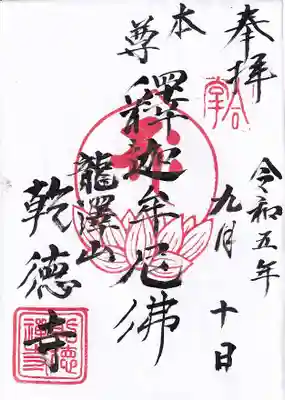 奉拝
令和五年
九月十日
本尊
釋迦牟尼佛
龍澤山
乾德寺